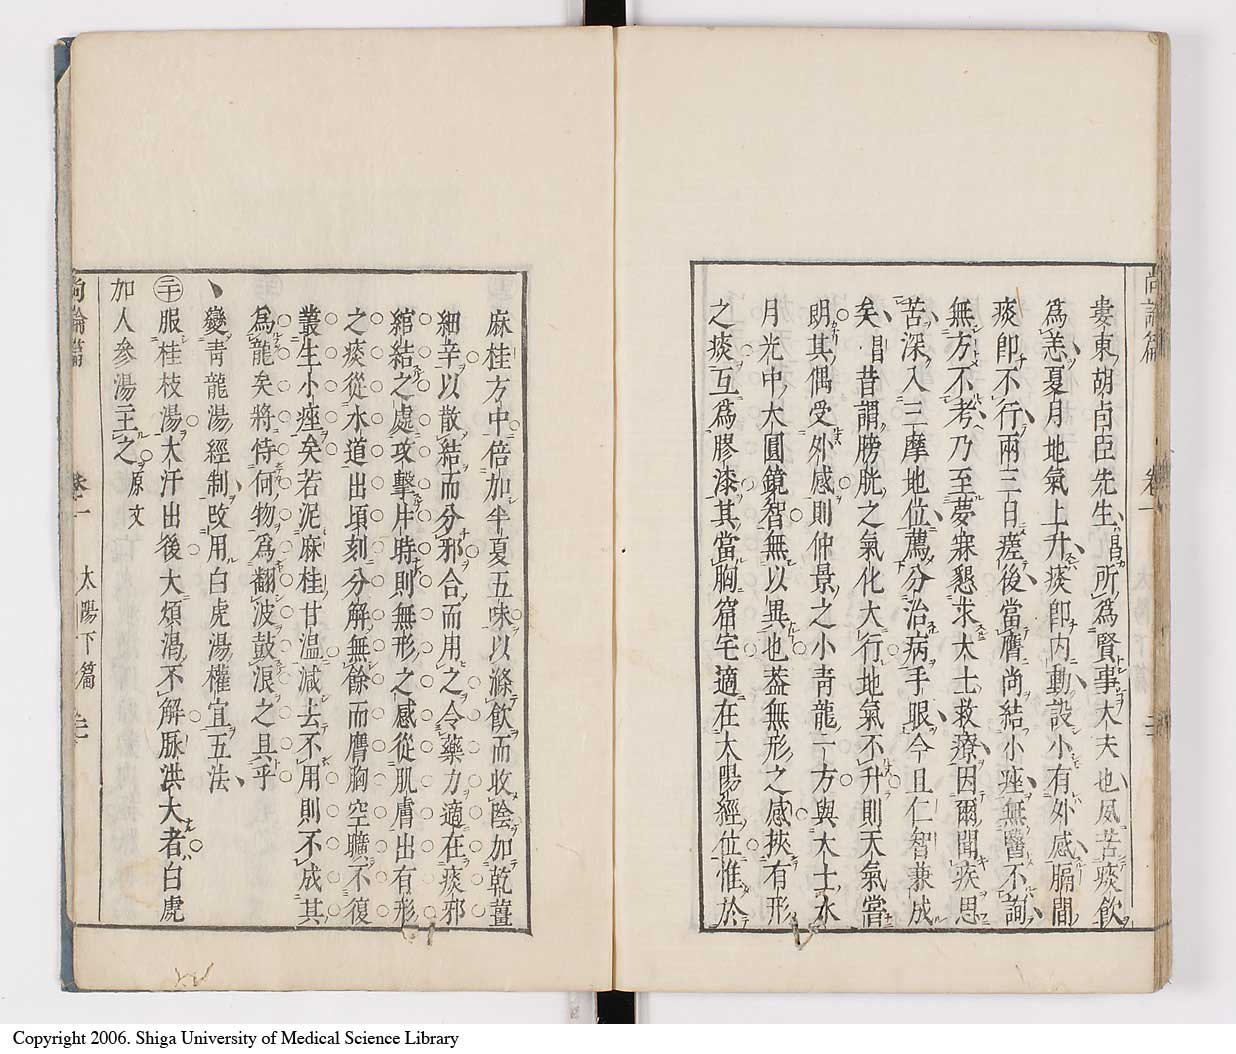 尚論篇 卷一 太陽下篇 二
婁東胡卣臣先生昌所爲賢事大夫也夙苦痰飲
爲恙夏月地氣上升痰即内動設小有外感膈間
痰即不行兩三日瘥後當膺尚結小痤無醫不詢
無方不考乃至夢寐懇求大士救療因爾聞疾思
苦深入三摩地位薦分治病手眼今且仁智兼成
矣昌昔謂膀胱之氣化大行地氣不升則天氣當
朗其偶受外感則仲景之小青龍一方與大士水
月光中大圓鏡智無以異也葢無形之感挾有形
之痰互爲膠漆其當胸窟宅適在太陽經位惟於
麻桂方中倍加半夏五味以滌飲而收陰加乾薑
細辛以散結而分邪合而用之令藥力適在痰邪
綰結之處攻擊片時則無形之感從肌膚出有形
之痰從水道出頃刻分解無餘而膺胸空曠不復
叢生小痤矣若泥麻桂甘温減去不用則不成其
爲龍矣將恃何物爲翻波鼓浪之具乎
變青龍湯經制改用白虎湯權宜五法
㊁服桂枝湯大汗出後大煩渴不解脈洪大者白虎
加人參湯主之原文
尚論篇 卷一 太陽下篇
Copyright 2006. Shiga University of Medical Science Library